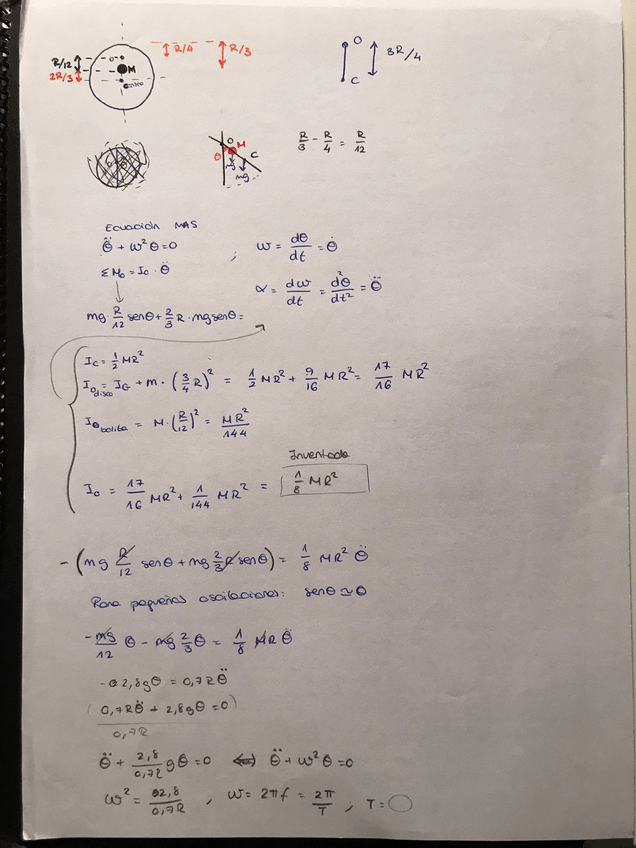 R/4
R/3
R/12
2R/3
O
M
centro
O
C
3R/4
O
M
θ
C
mg
mg
R/3 - R/4 = R/12
Ecuación MAS
θ̈ + ω²θ = 0 ; ω = dθ/dt = θ̇
ΣM₀ = I₀ · θ̈
α = dω/dt = d²θ/dt² = θ̈
mg · R/12 senθ + 2/3 R · mg senθ =
I_C = 1/2 MR²
I_O disco = I_G + m · (3/4 R)² = 1/2 MR² + 9/16 MR² = 17/16 MR²
I_O bolita = M · (R/12)² = MR²/144
Inventado
I₀ = 17/16 MR² + 1/144 MR² = 1/8 MR²
- (mg R/12 senθ + mg 2/3 R senθ) = 1/8 MR² θ̈
Para pequeñas oscilaciones: senθ ≃ θ
- mg/12 θ - mg 2/3 θ = 1/8 MR θ̈
2,8gθ = 0,7Rθ̈
(0,7Rθ̈ + 2,8gθ = 0)
0,7R
θ̈ + 2,8/0,7R gθ = 0 ⟺ θ̈ + ω²θ = 0
ω² = 2,8/0,7R , ω = 2πf = 2π/T ; T =